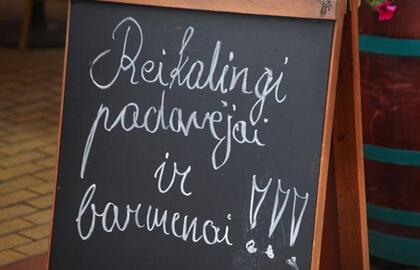 Reikalingi
padavėjai
ir
barmenai !!!